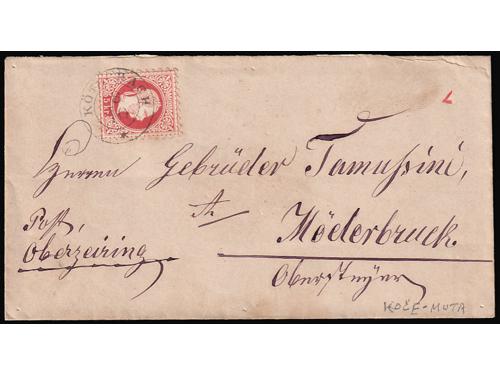 5 KR
KÖT
Herren Gebrüder Tamussini,
Post,
Möderbruck.
Oberzeiring
Obersteyer
KOČE-MUTA